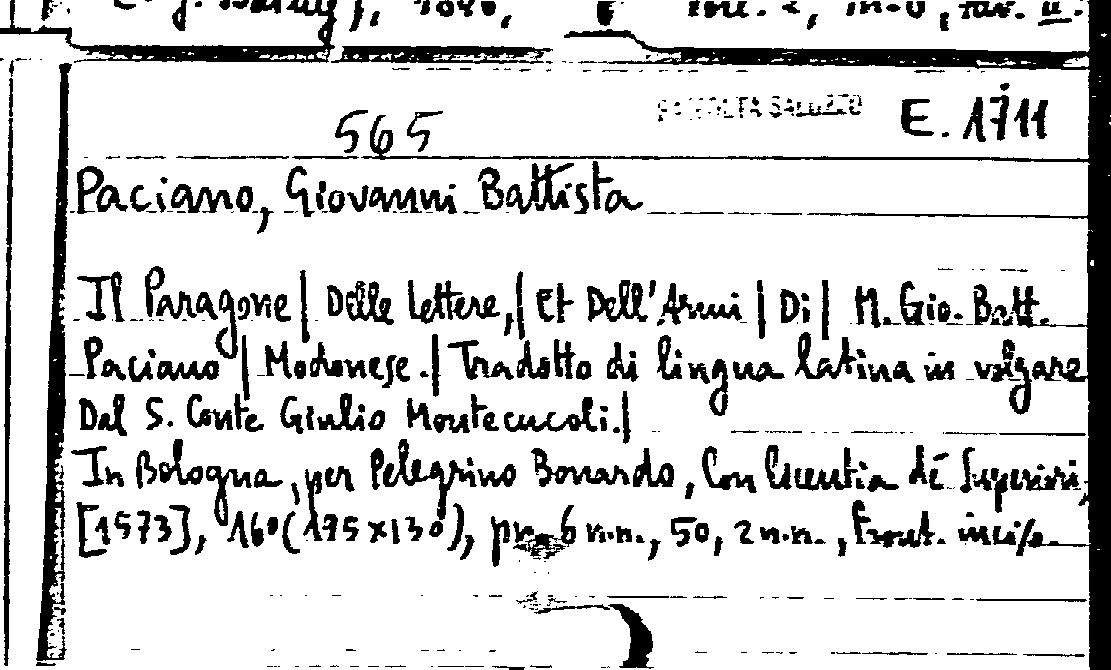 565 RACCOLTA SALUZZO E. 1711
Paciano, Giovanni Battista
Il Paragone | Delle lettere, | Et Dell'Armi | Di | M. Gio. Batt.
Paciano | Modonese. | Tradotto di lingua latina in volgare
Dal S. Conte Giulio Montecucoli. |
In Bologna, per Pelegrino Bonardo, Con licentia dé Superiori,
[1573], 16° (195x130), pp. 6 n.n., 50, 2 n.n., Front. inciso.